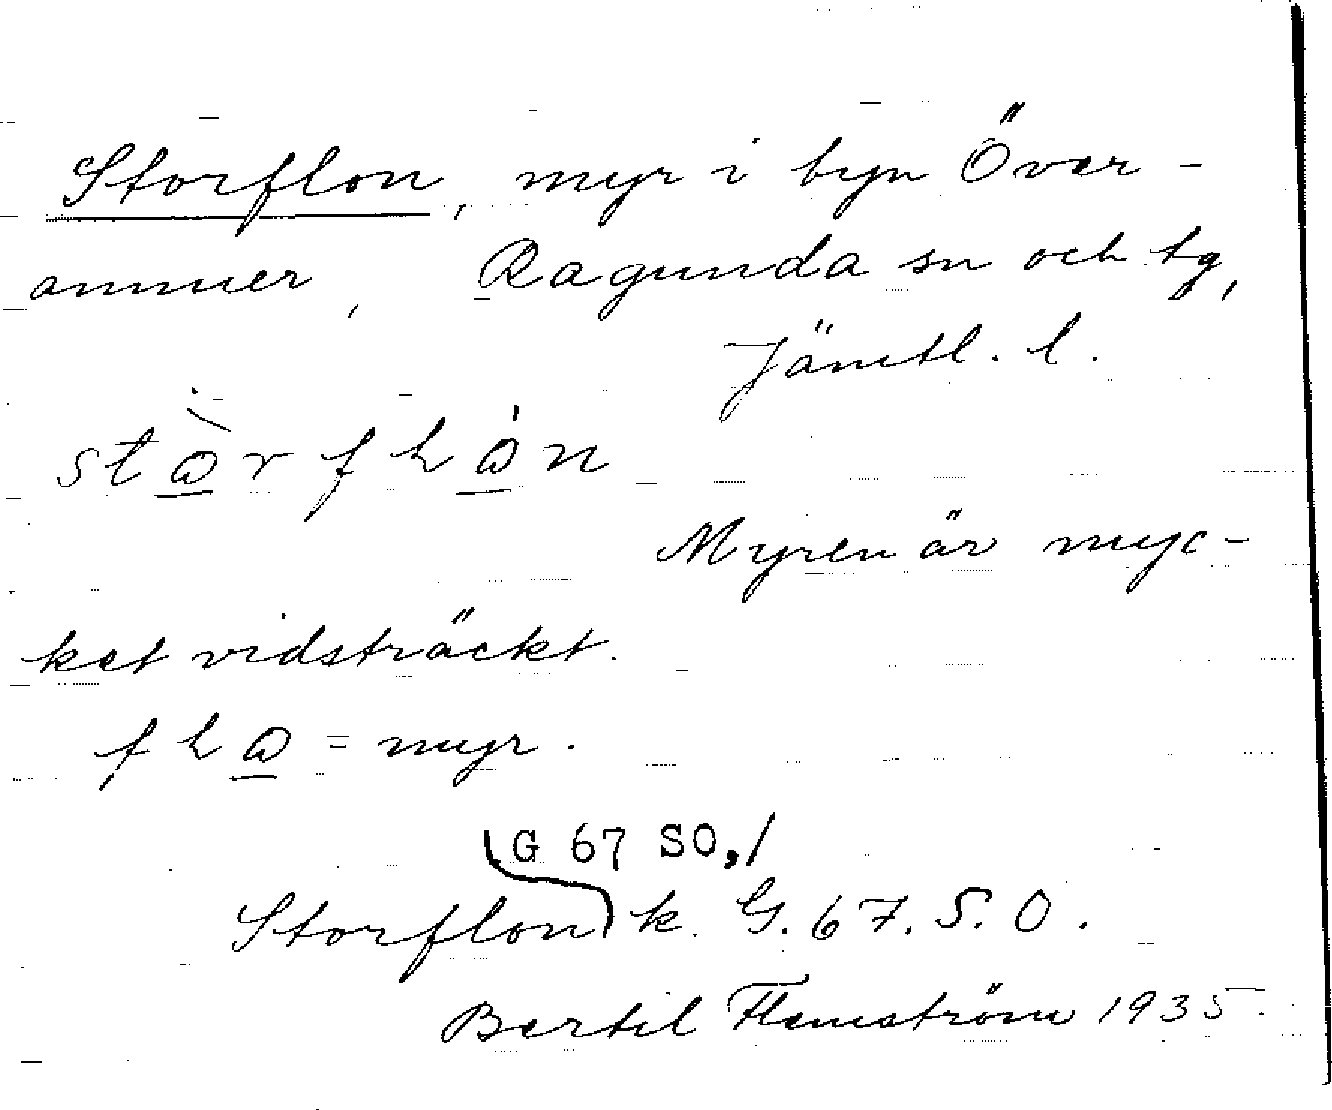 Storflon, myr i byn Över-
ammer, Ragunda sn och tg,
Jämtl. l.
Myren är myc-
ket vidsträckt.
= myr.
G 67 SO,/
Storflon k. G. 67. S. O.
Bertil Flemström 1935.